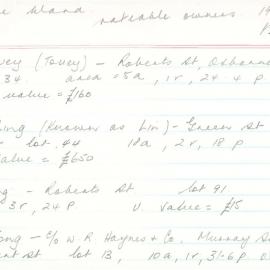 Island rateable owners 19
vey (Tovey) - Roberts St, Osborne
34. area = 5a, 1r, 24.4 p.
value = £160
ing (Known as Lin) - Green St
lot 44 18a, 2r, 18 p
value = £650
ng - Roberts St lot 91
3r, 24 p U. Value = £15
ong - c/o W R Haynes & Co. Murray S
St lot 13, 10a, 1r, 31.6 p